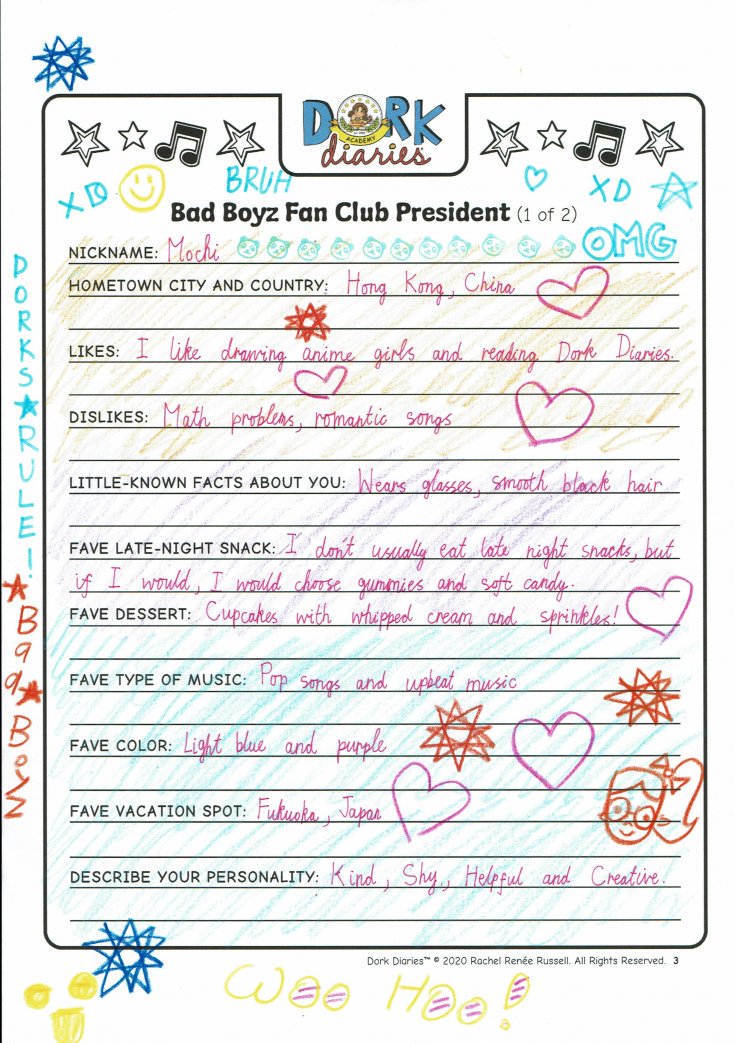 DORK
ACADEMY
diaries
XD
BRUH
XD
Bad Boyz Fan Club President (1 of 2)
NICKNAME: Mochi
OMG
HOMETOWN CITY AND COUNTRY: Hong Kong, China
LIKES: I like drawing anime girls and reading Dork Diaries.
DISLIKES: Math problems, romantic songs
LITTLE-KNOWN FACTS ABOUT YOU: Wears glasses, smooth black hair
FAVE LATE-NIGHT SNACK: I don't usually eat late night snacks, but
if I would, I would choose gummies and soft candy.
FAVE DESSERT: Cupcakes with whipped cream and sprinkles!
FAVE TYPE OF MUSIC: Pop songs and upbeat music
FAVE COLOR: Light blue and purple
FAVE VACATION SPOT: Fukuoka, Japan
DESCRIBE YOUR PERSONALITY: Kind, Shy, Helpful and Creative.
DORKS RULE!
Bad Boyz
Dork Diaries™ © 2020 Rachel Renée Russell. All Rights Reserved. 3
Woo Hoo!